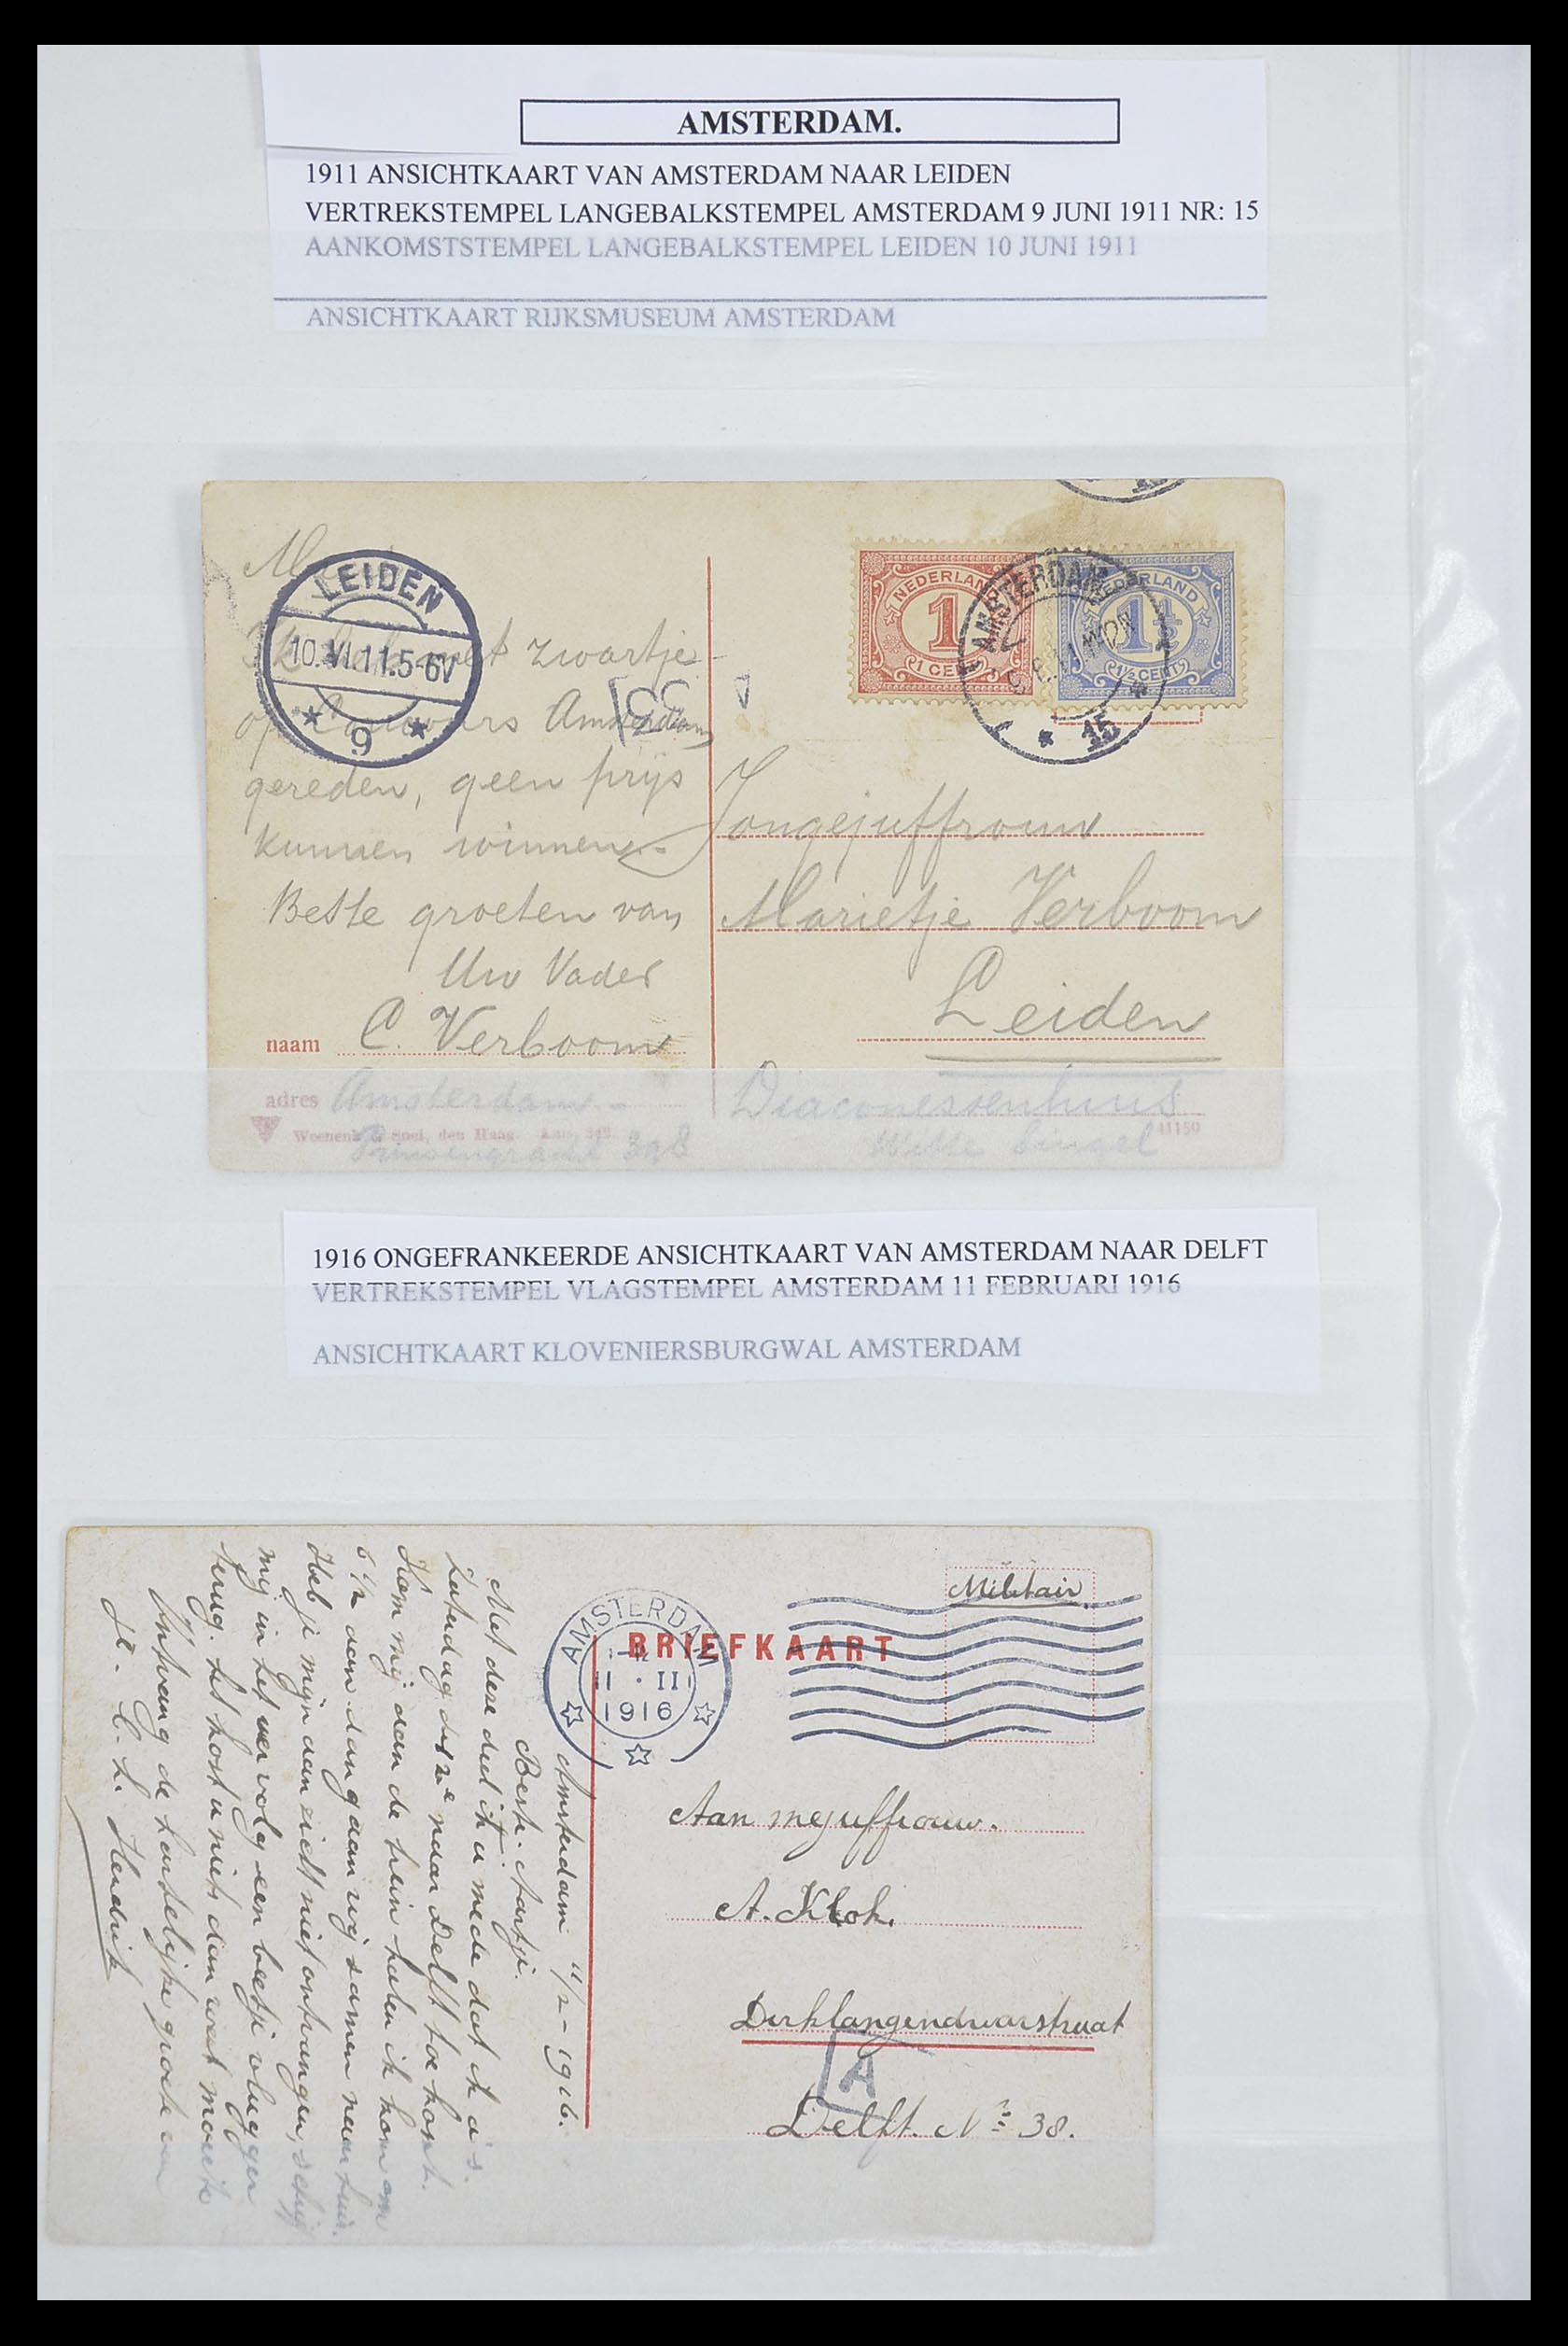 AMSTERDAM.
1911 ANSICHTKAART VAN AMSTERDAM NAAR LEIDEN
VERTREKSTEMPEL LANGEBALKSTEMPEL AMSTERDAM 9 JUNI 1911 NR: 15
AANKOMSTSTEMPEL LANGEBALKSTEMPEL LEIDEN 10 JUNI 1911
ANSICHTKAART RIJKSMUSEUM AMSTERDAM
LEIDEN
10.VI.11.5-6V
9
zwartje
Amsterdam
gereden, geen prijs
kunnen winnen.
Beste groeten van
Uw Vader
naam C. Verboom
adres Amsterdam.-
Prinsengracht 398
Weenenk & Snel, den Haag.
NEDERLAND
1
1 CENT
NEDERLAND
1½
1½ CENT
AMSTERDAM
15
Jongejuffrouw
Marietje Verboom
Leiden
Diaconessenhuis
Witte Singel
41150
1916 ONGEFRANKEERDE ANSICHTKAART VAN AMSTERDAM NAAR DELFT
VERTREKSTEMPEL VLAGSTEMPEL AMSTERDAM 11 FEBRUARI 1916
ANSICHTKAART KLOVENIERSBURGWAL AMSTERDAM
Militair
BRIEFKAART
AMSTERDAM
11 · II
1916
Aan mejuffrouw.
A. Klok.
Dirklangendwarsstraat
A
Delft. No 38.
Amsterdam 11/2-1916.
Beste Aartje.
Met deze deel ik u mede dat ik a's.
Zaterdag naar Delft toe komt.
Kom mij aan de trein halen ik kom om
6 1/2 aan dan gaan wij samen naar huis.
Heb je mijn aanzicht niet ontvangen, schrijf
mij in het vervolg een beetje vlugger
terug. het kost u niets dan wat moeite
Ontvang de hartelijke groete van
Hendrik